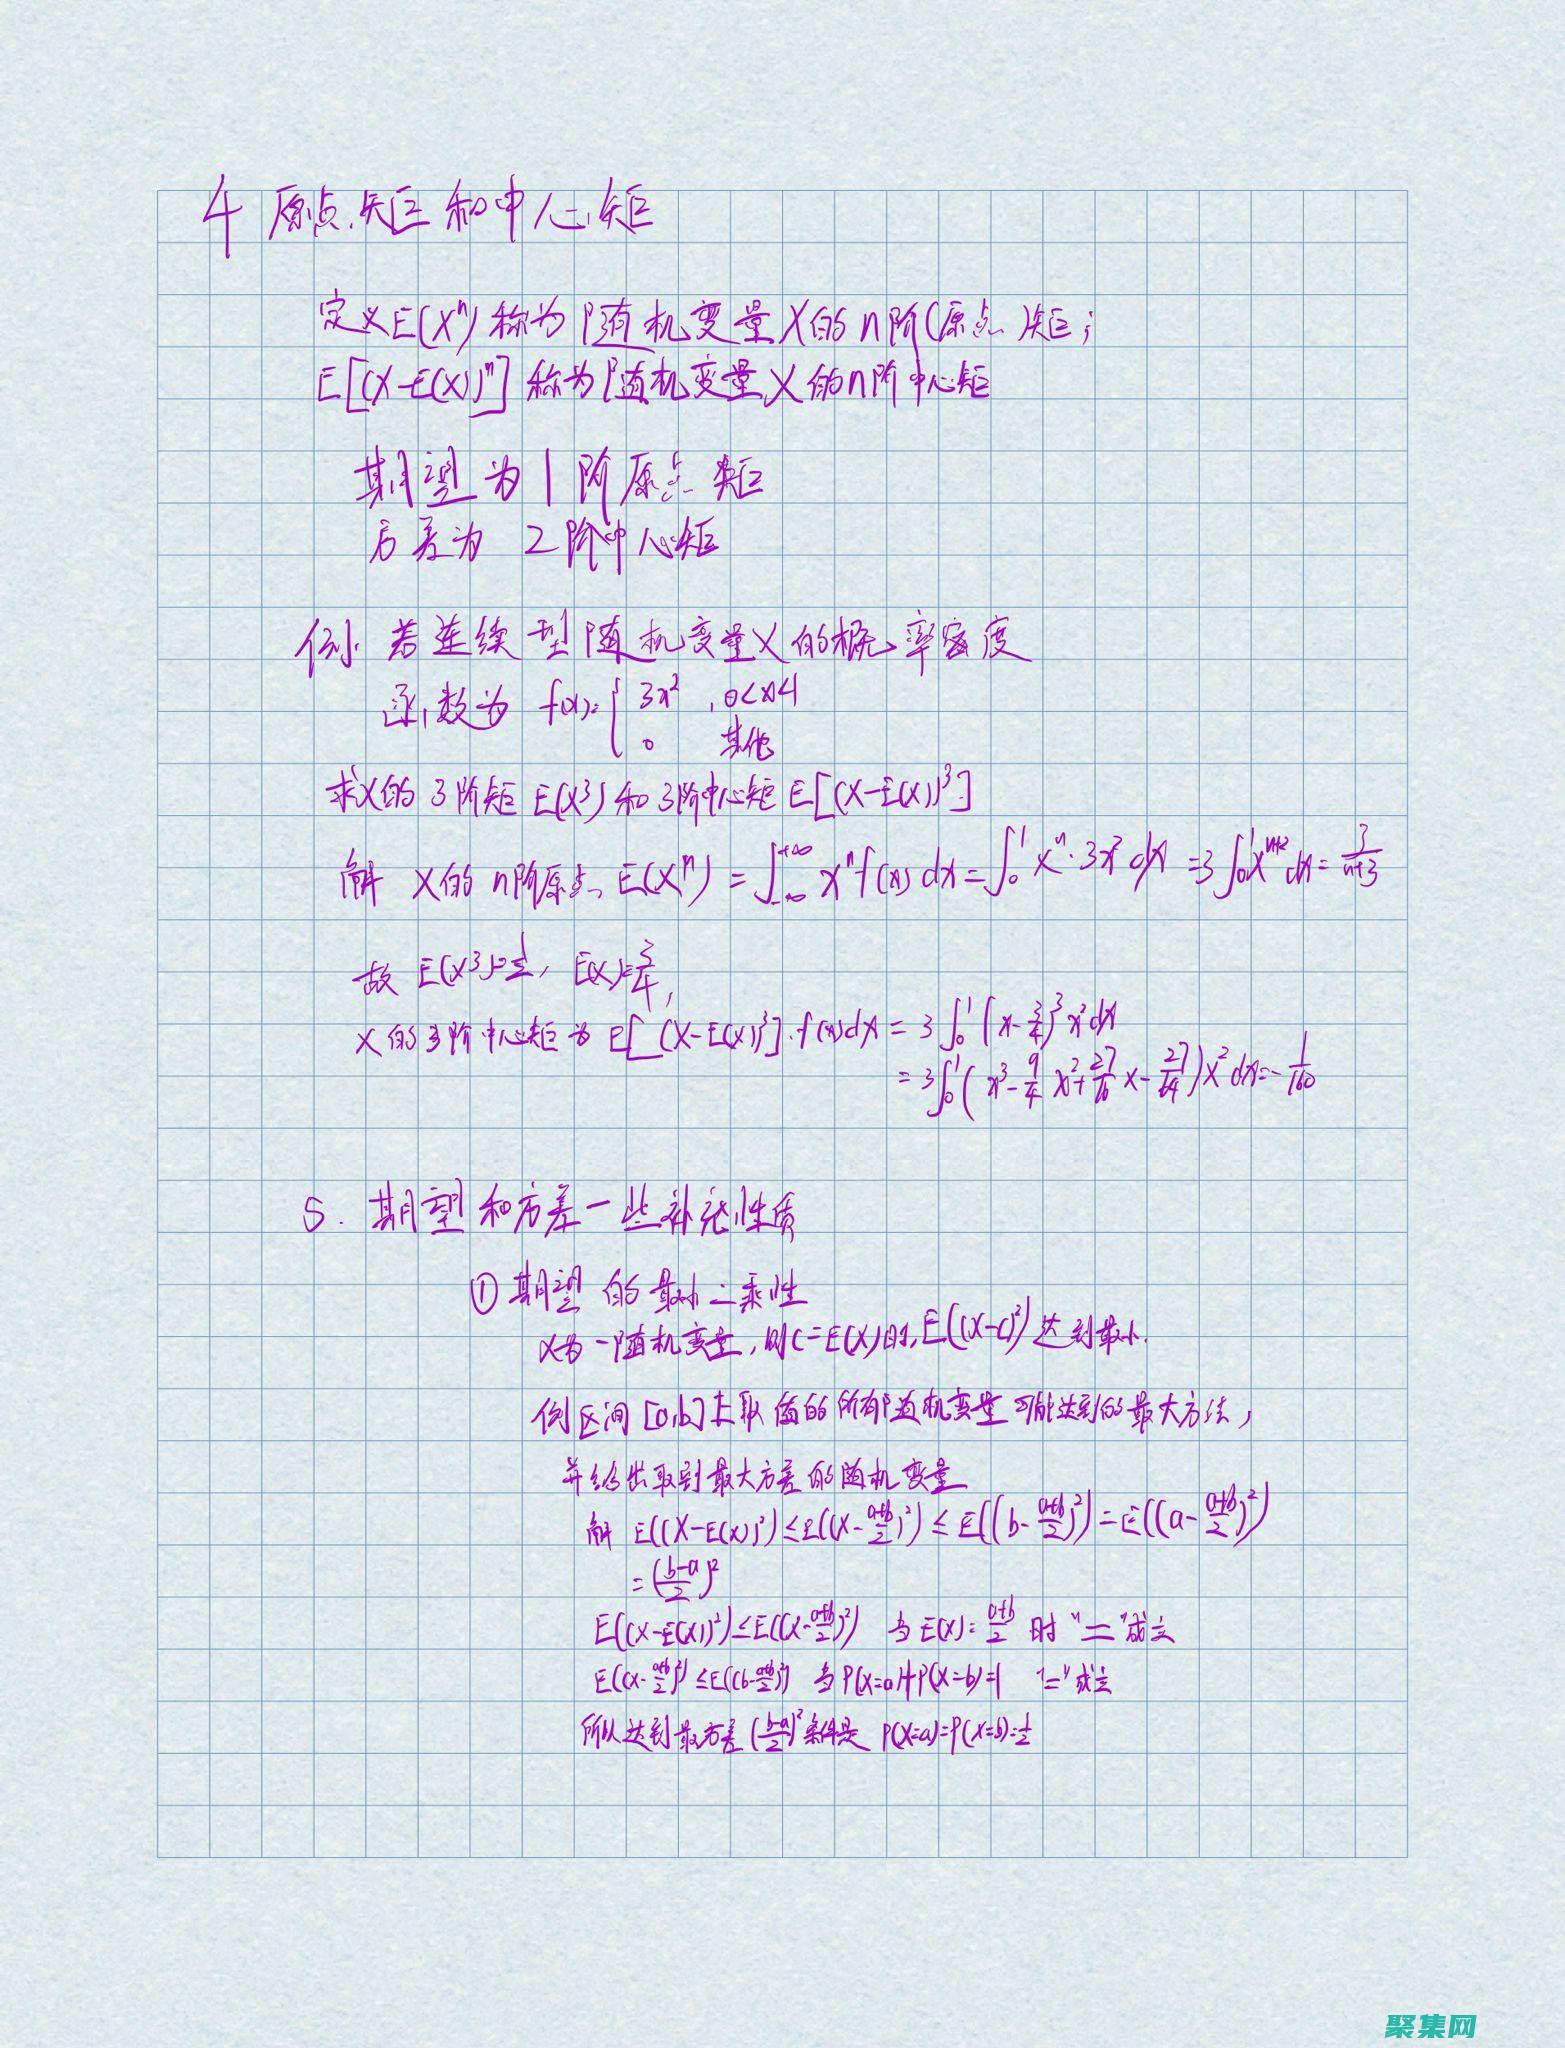 4 原点矩和中心矩
定义E(Xⁿ)称为随机变量X的n阶(原点)矩;
E[(X-E(X))ⁿ]称为随机变量X的n阶中心矩
期望为1阶原点矩
方差为2阶中心矩
例 若连续型随机变量X的概率密度
函数为 f(x)={ 3x² , 0<x<1
0 其他
求X的3阶矩E(X³)和3阶中心矩E[(X-E(X))³]
解 X的n阶原点 E(Xⁿ)=∫₋∞^{+∞} xⁿf(x)dx=∫₀¹ xⁿ·3x²dx=3∫₀¹x^{n+2}dx=3/(n+3)
故 E(X³)=1/2, E(X)=3/4,
X的3阶中心矩为 E[(X-E(X))³]·f(x)dx=3∫₀¹(x-3/4)³x²dx
=3∫₀¹(x³-9/4 x²+27/16 x-27/64)x²dx=-1/160
5. 期望和方差一些补充性质
① 期望的最小二乘性
X为一随机变量,则C=E(X)时,E((X-C)²)达到最小.
例 区间[a,b]上取值的所有随机变量可能达到的最大方法,
并给出取到最大方差的随机变量
解 E((X-E(X))²)≤E((X-(a+b)/2)²)≤E((b-(a+b)/2)²)=E((a-(a+b)/2)²)
=((b-a)/2)²
E((X-E(X))²)≤E((X-(a+b)/2)²) 当E(X)=(a+b)/2 时 "="成立
E((X-(a+b)/2)²)≤E((b-(a+b)/2)²) 当P(X=a)+P(X=b)=1 "="成立
所以达到最方差((b-a)/2)²条件是 P(X=a)=P(X=b)=1/2
聚集网